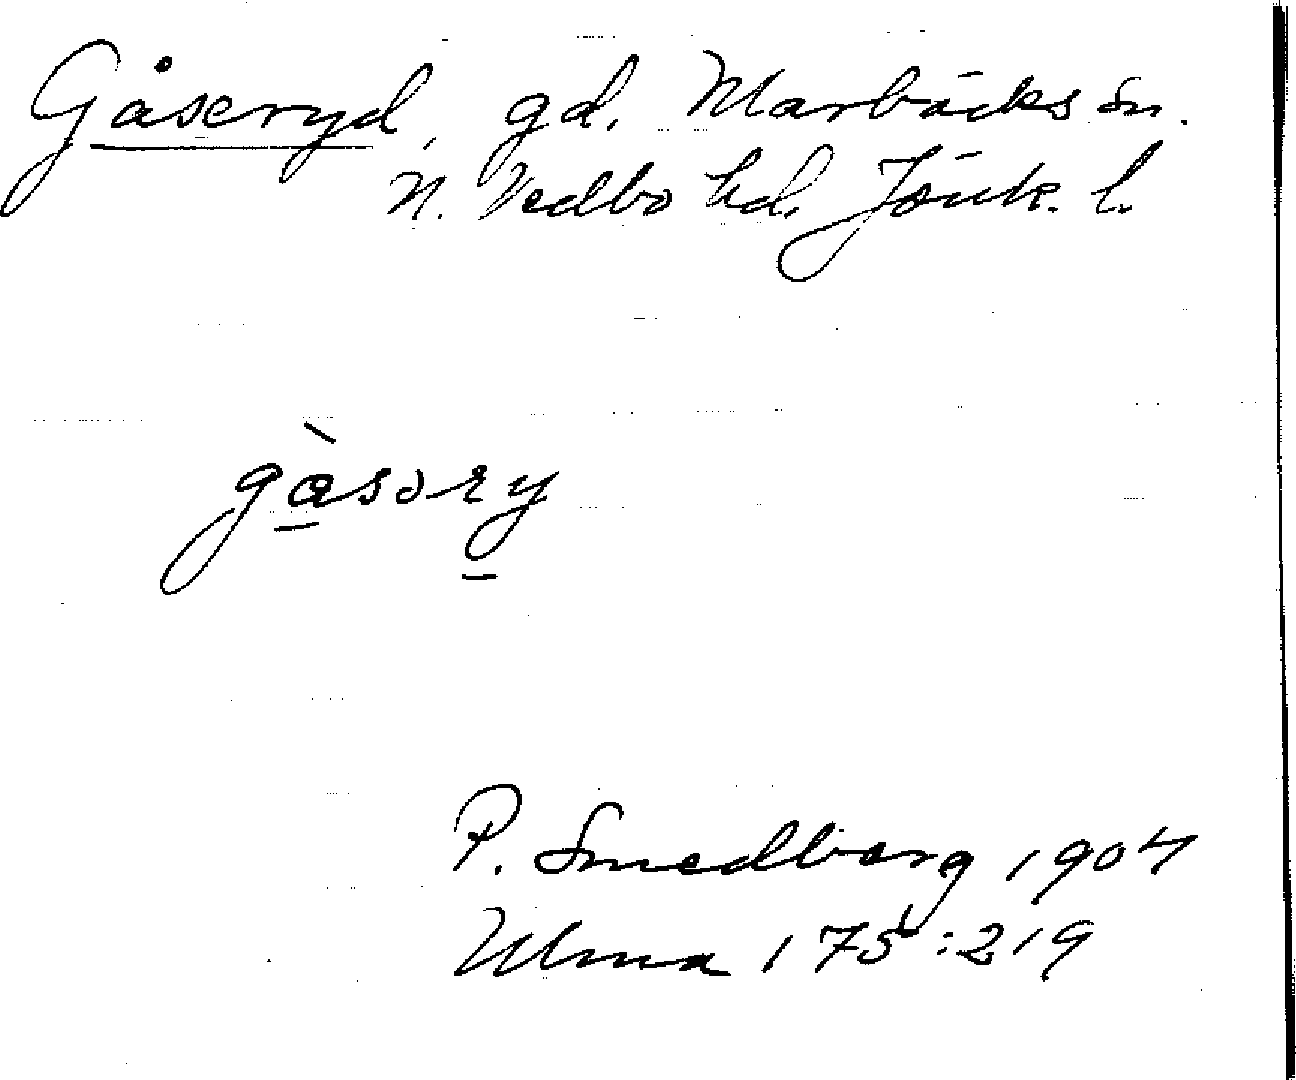 Gåseryd, gd. Marbäcks sn.
N. Vedbo hd. Jönk. l.
gàsəry
P. Smedberg 1904
Ulma 175:219